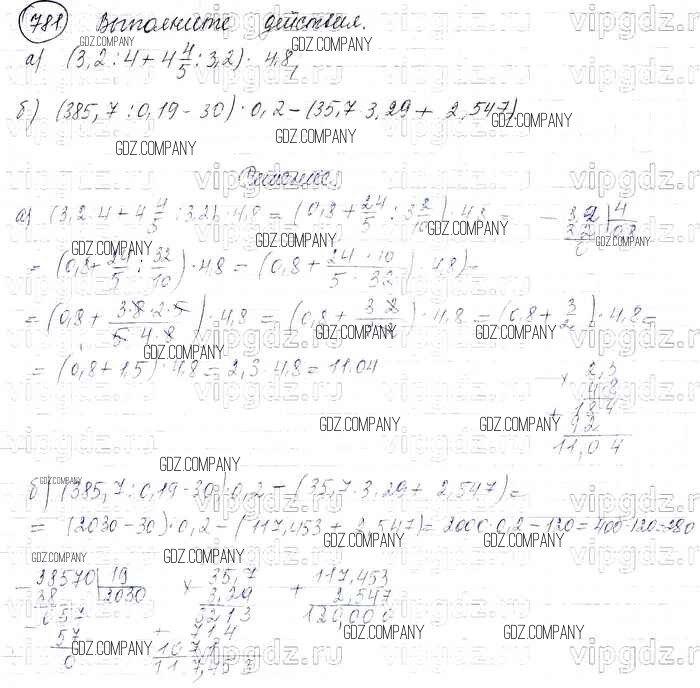 781 Выполните действия.
а) (3,2 : 4 + 4 4/5 : 3,2) · 4,8
б) (385,7 : 0,19 - 30) · 0,2 - (35,7 · 3,29 + 2,547)
Решение.
а) (3,2 : 4 + 4 4/5 : 3,2) · 4,8 = (0,8 + 24/5 : 3 2/10) · 4,8 =
= (0,8 + 24/5 : 32/10) · 4,8 = (0,8 + 24 · 10/5 · 32) · 4,8) =
= (0,8 + 3·8·2·5/5·4·8) · 4,8 = (0,8 + 3 · 2/2 · 2) · 4,8 = (0,8 + 3/2) · 4,8 =
= (0,8 + 1,5) · 4,8 = 2,3 · 4,8 = 11,04
- 3,2 | 4
3 2 | 0,8
0
× 2,3
4,8
+ 184
92
11,04
б) (385,7 : 0,19 - 30) · 0,2 - (35,7 · 3,29 + 2,547) =
= (2030 - 30) · 0,2 - (117,453 + 2,547) = 2000 · 0,2 - 120 = 400 - 120 = 280
- 38570 | 19
38 | 2030
057
- 57
0
× 35,7
3,29
3213
+ 714
1071
117,453
+ 117,453
2,547
120,000
GDZ.COMPANY
vipgdz.ru